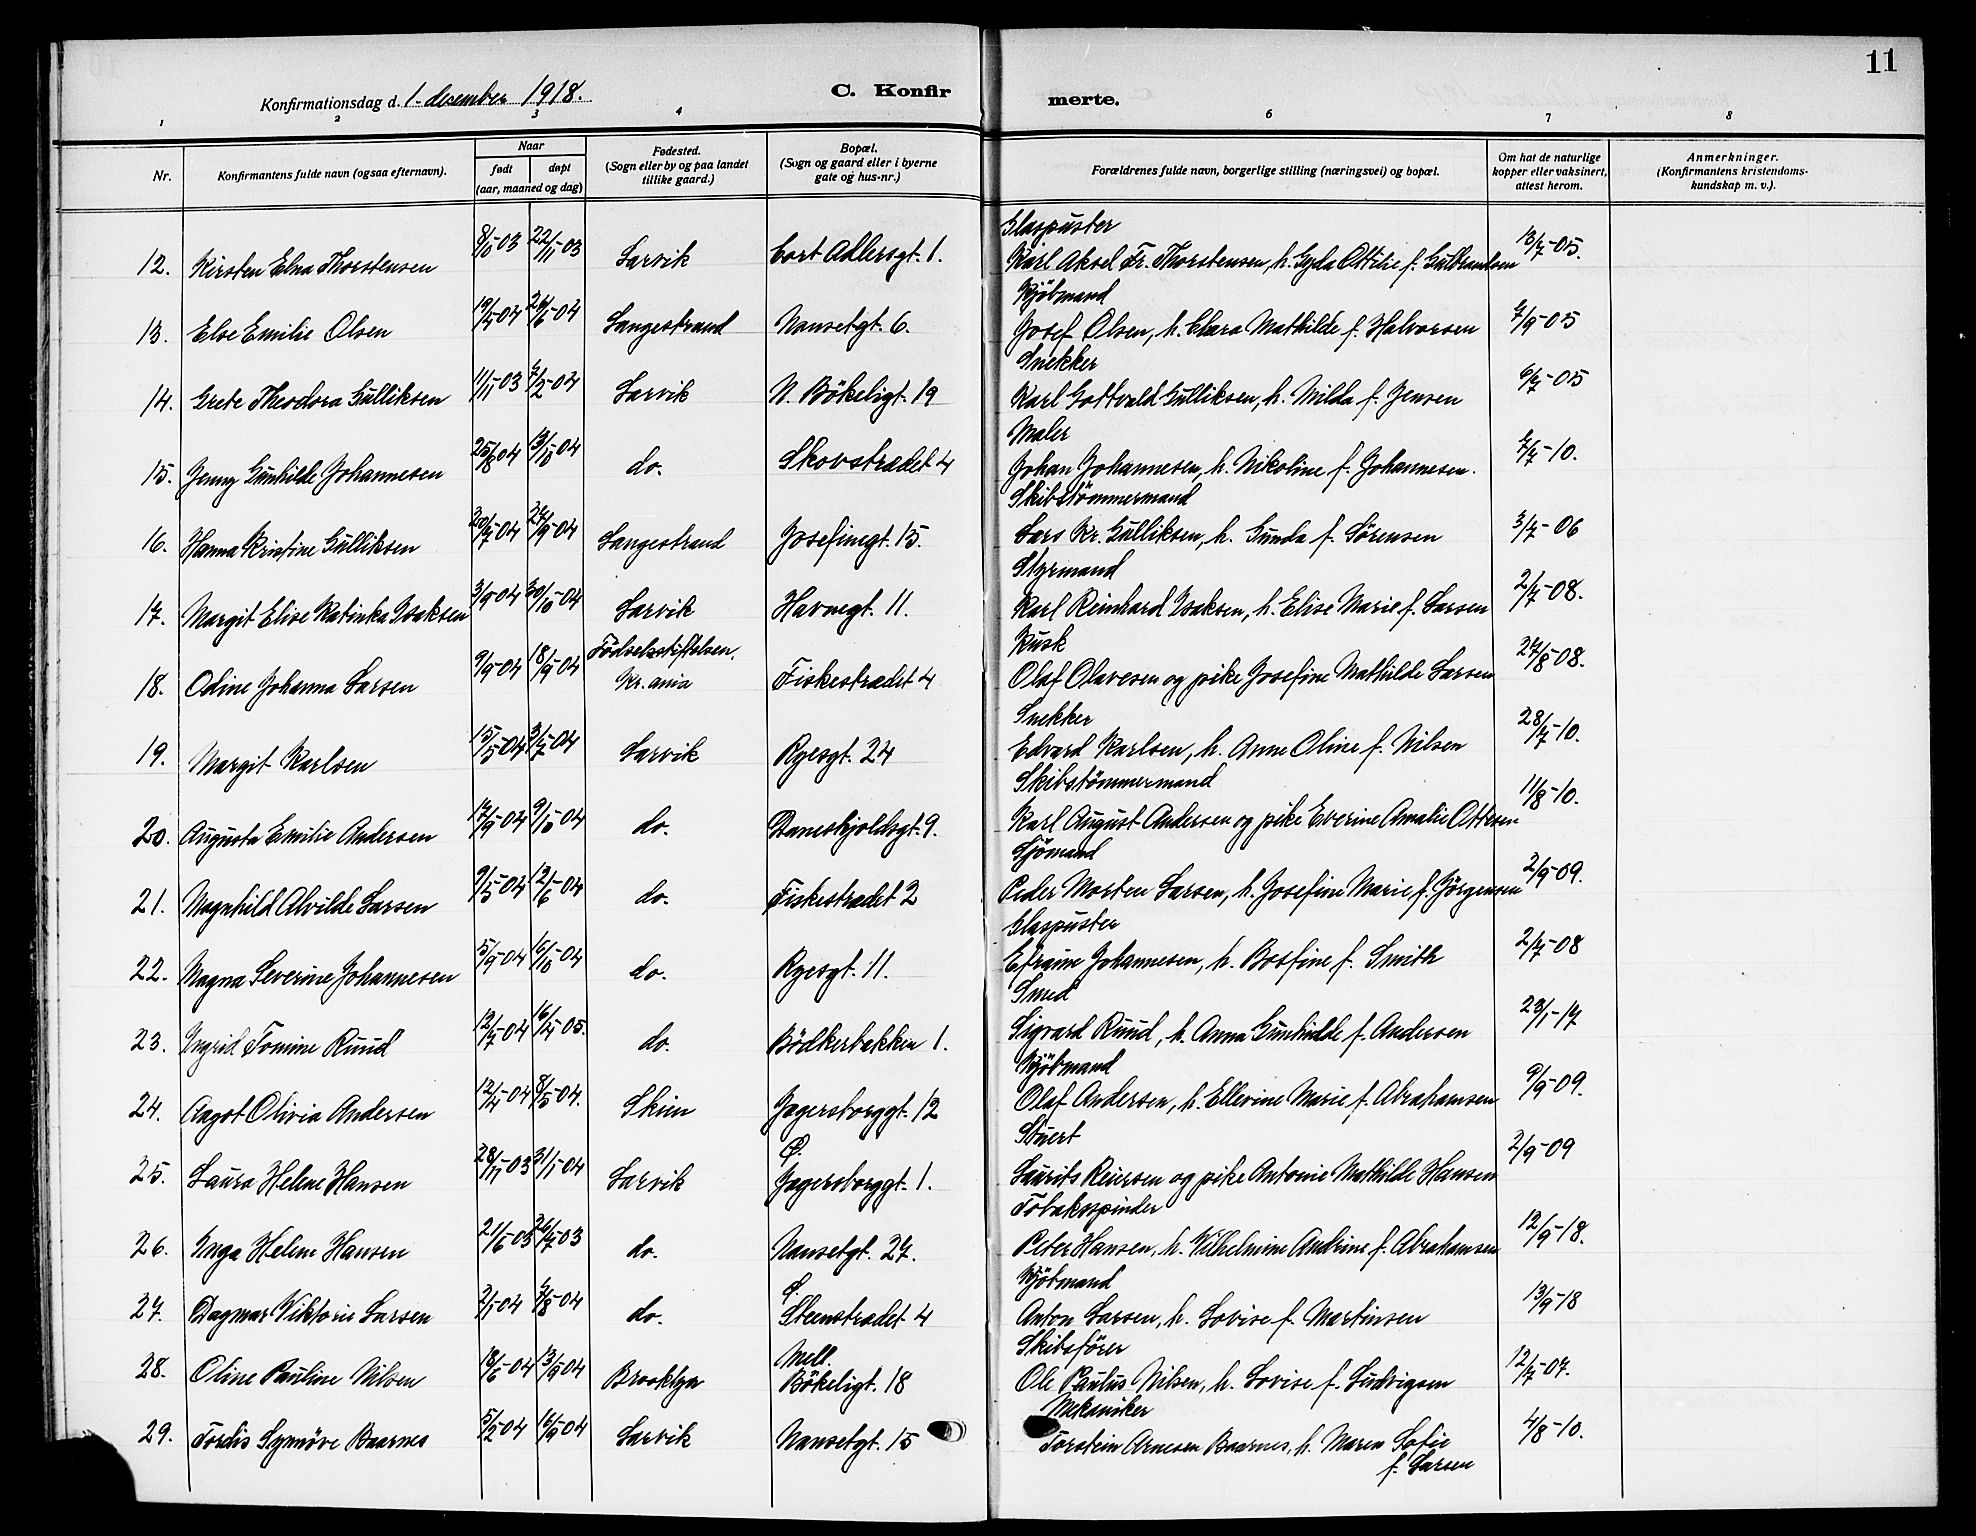 11
Konfirmationsdag d. 1. desember 1918.
C. Konfirmerte.
1 2 3 4 6 7 8
Nr. Konfirmantens fulde navn (ogsaa efternavn). Naar født døpt (aar, maaned og dag) Fødested. (Sogn eller by og paa landet tillike gaard.) Bopæl. (Sogn og gaard eller i byerne gate og hus-nr.) Forældrenes fulde navn, borgerlige stilling (næringsvei) og bopæl. Om hat de naturlige kopper eller vaksinert, attest herom. Anmerkninger. (Konfirmantens kristendomskundskap m. v.).
Glaspuster
12. Kirsten Elna Thorstensen 8/10-03 22/11-03 Larvik Cort Adlersgt. 1. Karl Aksel Fr. Thorstensen, h. Gyda Ottilie f. Gulbrandsen 13/7-05.
Kjöbmand
13. Else Emilie Olsen 19/4-04 26/6-04 Langestrand Nansetgt. 6. Josef Olsen, h. Clara Mathilde f. Halvorsen 7/9-05
Snekker
14. Grete Theodora Gulliksen 11/11-03 7/2-04 Larvik N. Bökeligt. 19 Karl Gottvald Gulliksen, h. Milda f. Jensen 6/7-05
Maler
15. Jenny Gunhilde Johannesen 25/8 04 13/10-04 do. Skovstrædet 4 Johan Johannesen, h. Nikoline f. Johannesen. 7/7-10.
Skibstömmermand
16. Hanna Kristine Gulliksen 20/7-04 27/9-04 Langestrand Josefinegt. 15. Lars Kr. Gulliksen, h. Gunda f. Sørensen 3/7-06
Styrmand
17. Margit Elise Katinka Isaksen 3/9 04 30/10-04 Larvik Havnegt. 11. Karl Reinhard Isaksen, h. Elise Marie f. Larsen 2/7-08.
Födselsstiftelsen. Kusk
18. Odine Johanna Larsen 9/9-04 18/9-04 Kr.ania Fiskestrædet 4 Olaf Olavesen og pike Josefine Mathilde Larsen 27/8-08.
Snekker
19. Margit Karlsen 15/5-04 3/7-04 Larvik Ryesgt. 24 Edvard Karlsen, h. Anne Oline f. Nilsen 28/7-10.
Skibstömmermand
20. Augusta Emilie Andersen 17/9-04 9/10-04 do. Daneskjoldsgt. 9. Karl August Andersen og pike Everine Amalie Ottesen 11/8-10.
Sjömand
21. Magnhild Alvilde Larsen 9/5-04 12/6-04 do. Fiskestrædet 2 Peder Morten Larsen, h. Josefine Marie f. Jörgensen 2/9-09.
Glaspuster
22. Magna Severine Johannesen 5/9-04 16/10-04 do. Ryesgt. 11. Efraim Johannesen, h. Bosfine f. Smith 2/7-08
Smed
23. Ingrid Tomine Ruud 12/7-04 16/4-05. do. Bödkerbakken 1. Sigvard Ruud, h. Anna Gunhilde f. Andersen 23/1-17
Kjöbmand
24. Aagot Olivia Andersen 12/4-04 8/5-04. Skien Jegersborggt. 12 Olaf Andersen, h. Ellevine Marie f. Abrahamsen 9/9-09.
Ø. Stuert
25. Laura Helene Hansen 28/11-03 31/1-04 Larvik Jegersborggt. 1. Laurits Reiersen og pike Antonie Mathilde Hansen 2/9-09
Tobaksspinder
26. Inga Helene Hansen 21/6-03 26/7-03 do. Nansetgt. 27. Peter Hansen, h. Vilhelmine Andrine f. Abrahamsen 12/9-18.
Ø. Kjöbmand
27. Dagmar Viktorie Larsen 2/1-04 7/8-04 do. Steenstrædet 4 Anton Larsen, h. Lovise f. Martinsen 13/9-18
Mell. Skibsfører
28. Oline Pauline Nilsen 18/6-04 13/9 04 Brooklyn Bökeligt. 18 Ole Paulus Nilsen, h. Lovise f. Ludvigsen 12/7-07.
Mekaniker
29. Tordis Synnöve Baarnes 5/2-04 16/9-04 Larvik Nansetgt. 15 Torstein Arnesen Baarnes, h. Maren Sofie 4/8-10.
f. Larsen